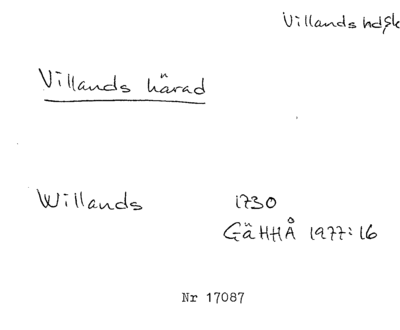 Villands hdSk
Villands härad
Willands 1730
GäHHÅ 1977:16
Nr 17087